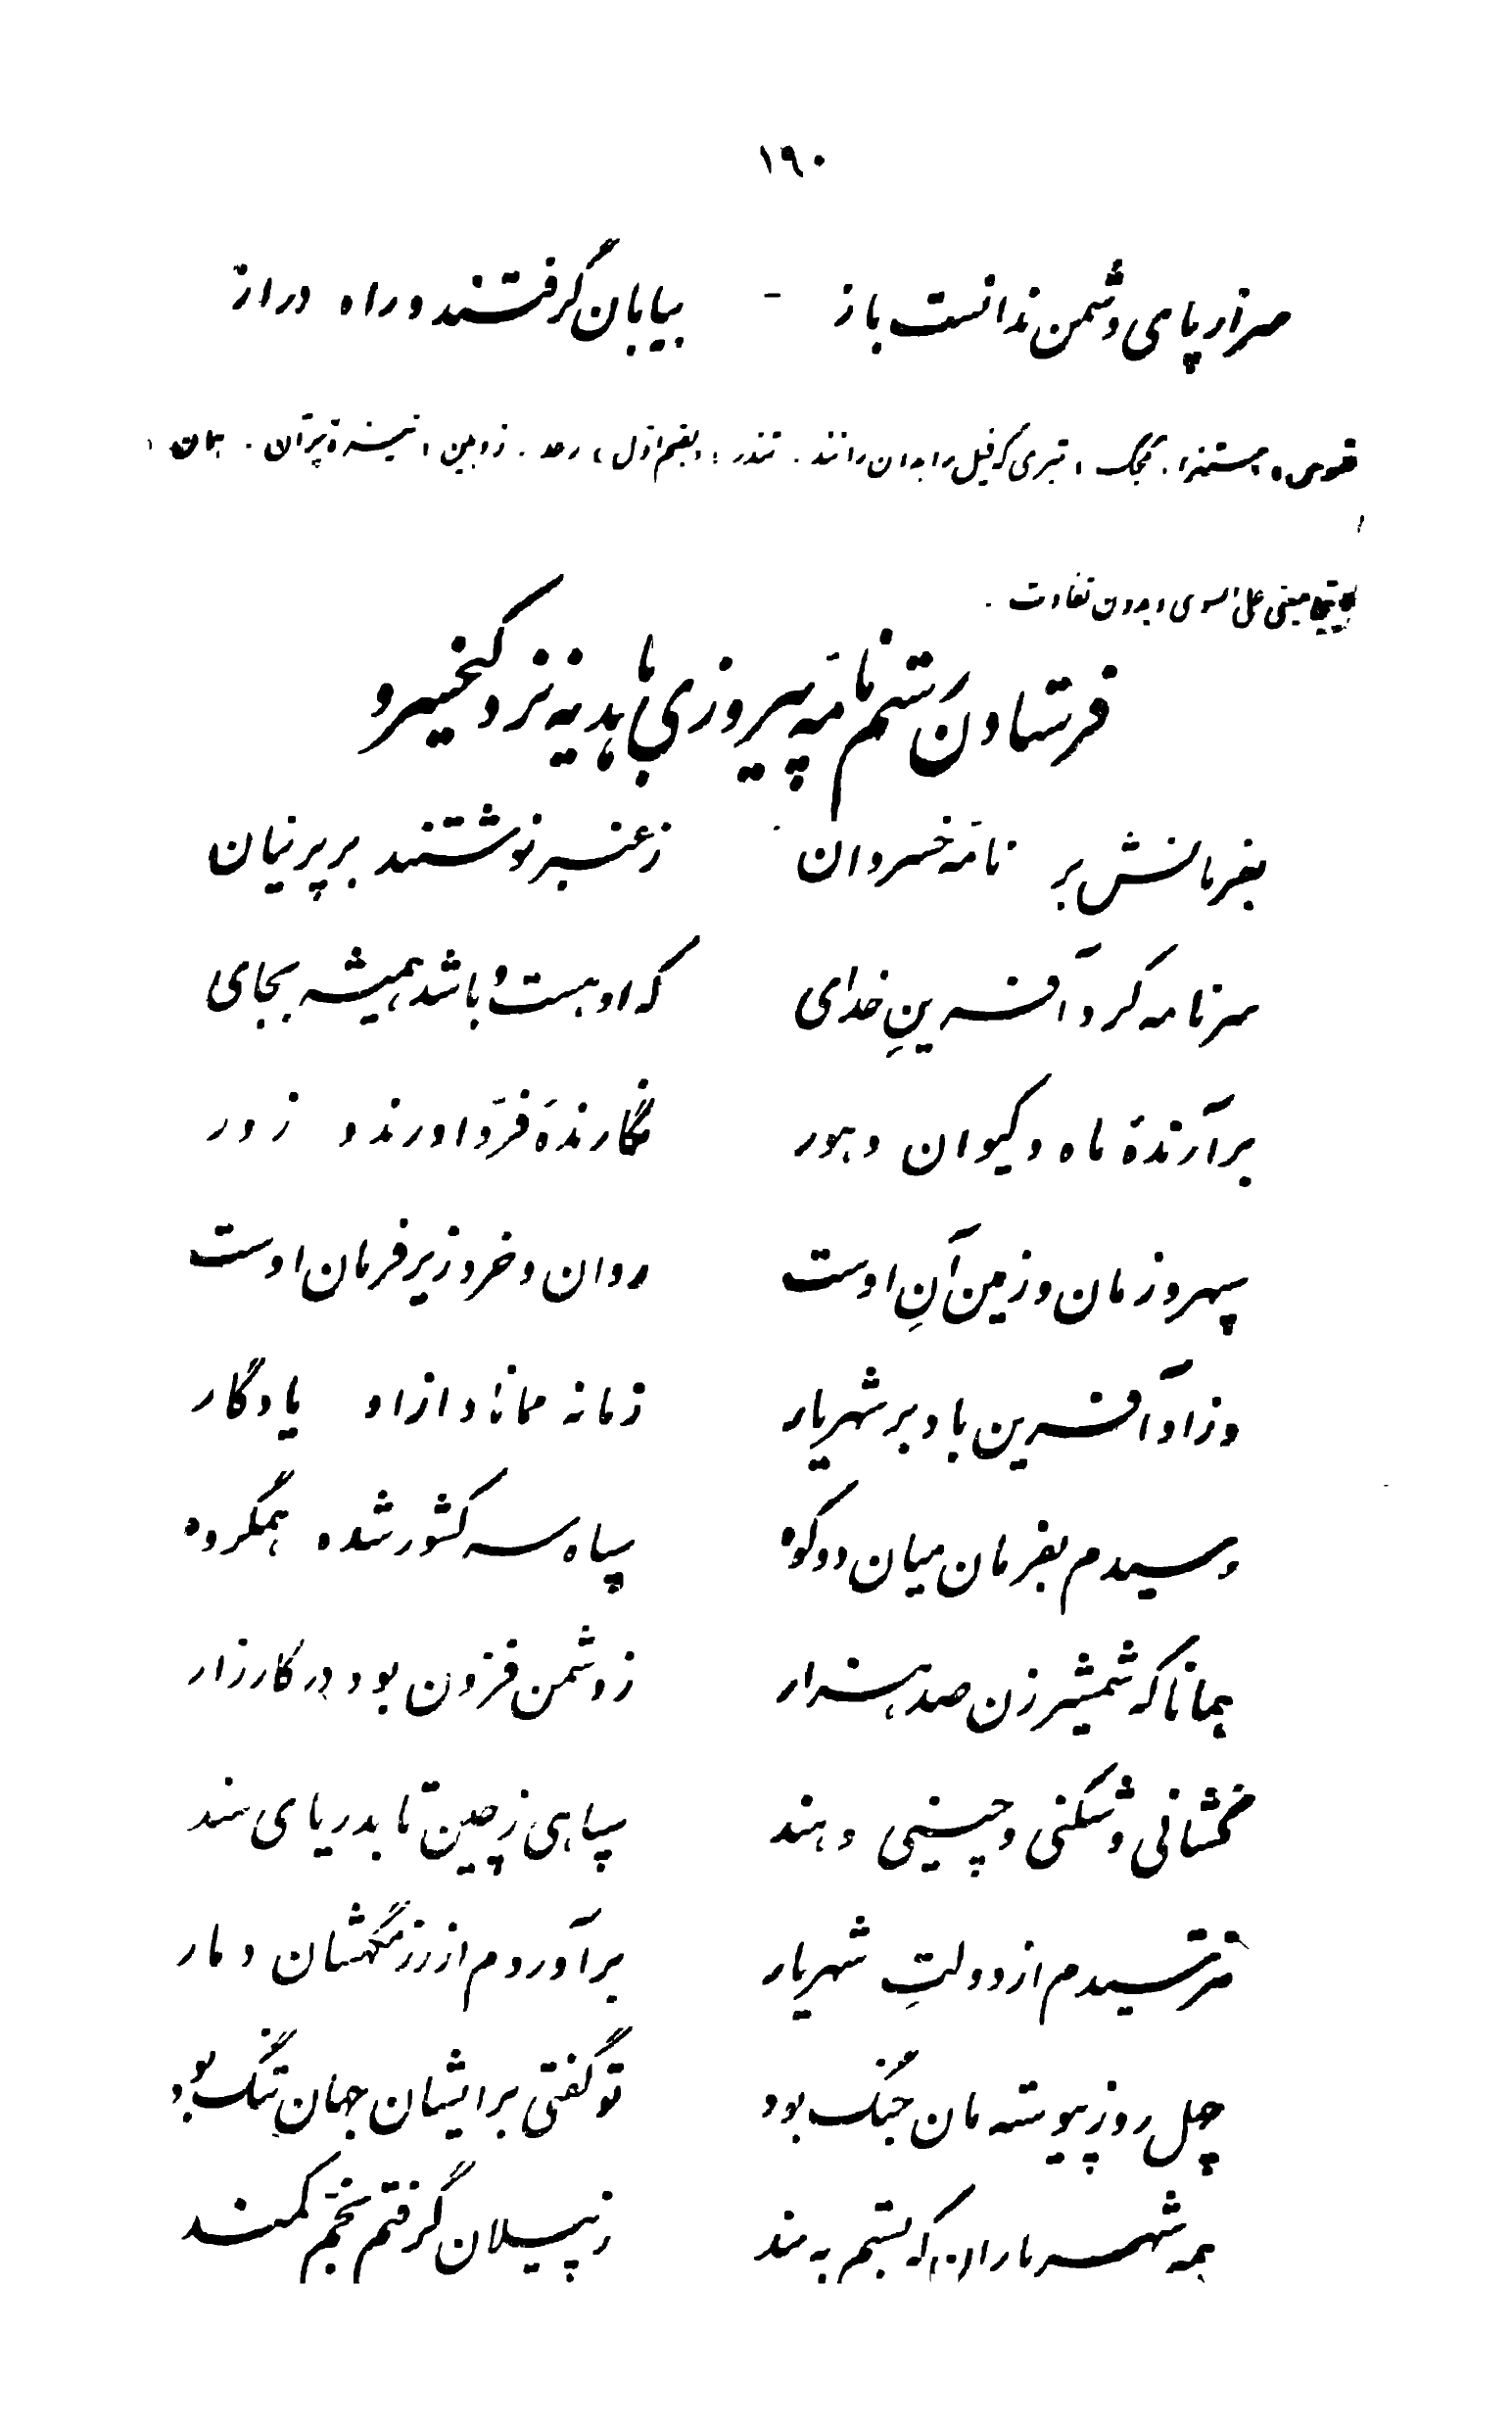 ۱۶۰
سر از پای دشمن ندانست باز - بیابان گرفتند و راه دراز
فسوس، استهزا. کجک، تبری که فیل را بدان رانند. تندر، بضم اول، رعد. زوبین، نیزهٔ پران. همان،
یکجا بمعنی علی السوی و بدون تفاوت.
فرستادن رستم نامهٔ پیروزی با هدیه نزد کیخسرو
بفرمانش بر نامهٔ خسروان ز عنبر نوشتند بر پرنیان
سر نامه کرد آفرینِ خدای که او هست و باشد همیشه بجای
برآرندهٔ ماه و کیوان و هور نگارندهٔ فر و اورند و زور
سپهر و زمان و زمین آنِ اوست روان و خرد زیر فرمان اوست
وزاو آفرین باد بر شهریار زمانه مماناد از او یادگار
رسیدم بفرمان میان دو کوه سپاه سه کشور شده همگروه
همانا که شمشیر زن صد هزار ز دشمن فزون بود در کارزار
کشانی و شگنی و چینی و هند سپاهی ز چین تا بدریای سند
نترسیدم از دولتِ شهریار برآوردم از رزمگهشان دمار
چهل روز پیوسته مان جنگ بود تو گفتی برایشان جهان تنگ بود
همه شهریاران که بستم به بند ز پیلان گرفتم بخم کمند